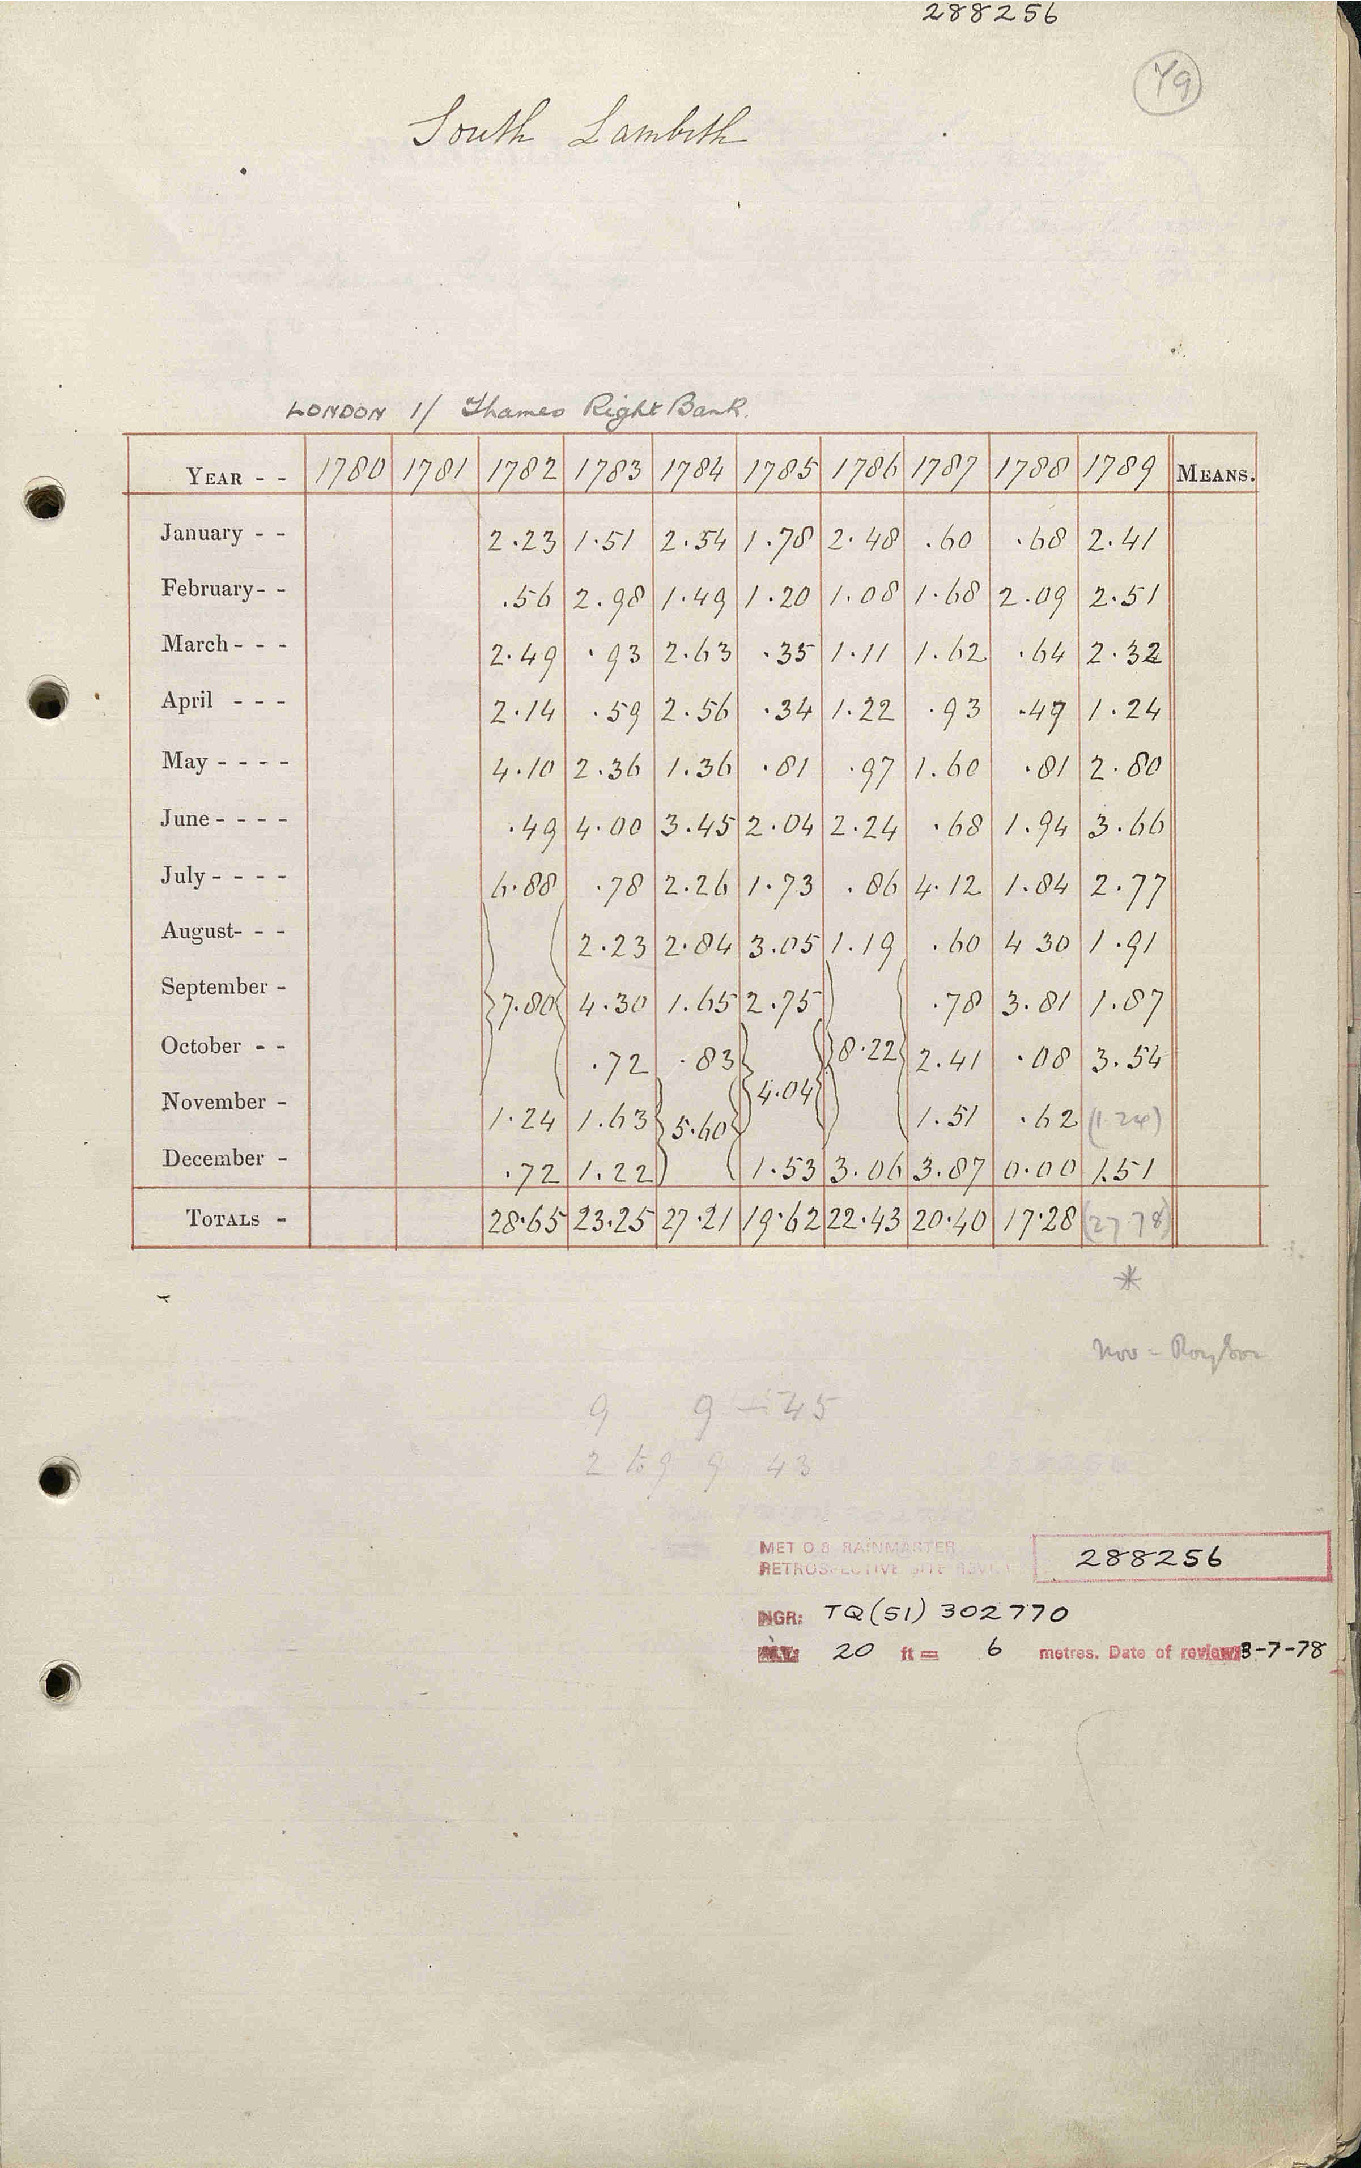 288256
79
South Lambeth
LONDON 1/ Thames Right Bank.
YEAR - - 1780 1781 1782 1783 1784 1785 1786 1787 1788 1789 MEANS.
January - - 2.23 1.51 2.54 1.78 2.48 .60 .68 2.41
February - - .56 2.98 1.49 1.20 1.08 1.68 2.09 2.51
March - - - 2.49 .93 2.63 .35 1.11 1.62 .64 2.32
April - - - 2.14 .59 2.56 .34 1.22 .93 .49 1.24
May - - - - 4.10 2.36 1.36 .81 .97 1.60 .81 2.80
June - - - - .49 4.00 3.45 2.04 2.24 .68 1.94 3.66
July - - - - 6.88 .78 2.26 1.73 .86 4.12 1.84 2.77
August - - - 2.23 2.84 3.05 1.19 .60 4 30 1.91
September - 7.80 4.30 1.65 2.75 .78 3.81 1.87
October - - .72 .83 8.22 2.41 .08 3.54
November - 1.24 1.63 5.60 4.04 1.51 .62 (1.24)
December - .72 1.22 1.53 3.06 3.87 0.00 1.51
TOTALS - 28.65 23.25 27.21 19.62 22.43 20.40 17.28 (27.78)
*
Nov =
9 9 45
2 to 9 9 43
MET O.8 RAINMASTER
RETROSPECTIVE SITE 288256
NGR: TQ(51) 302770
20 ft = 6 metres. Date of review 3-7-78